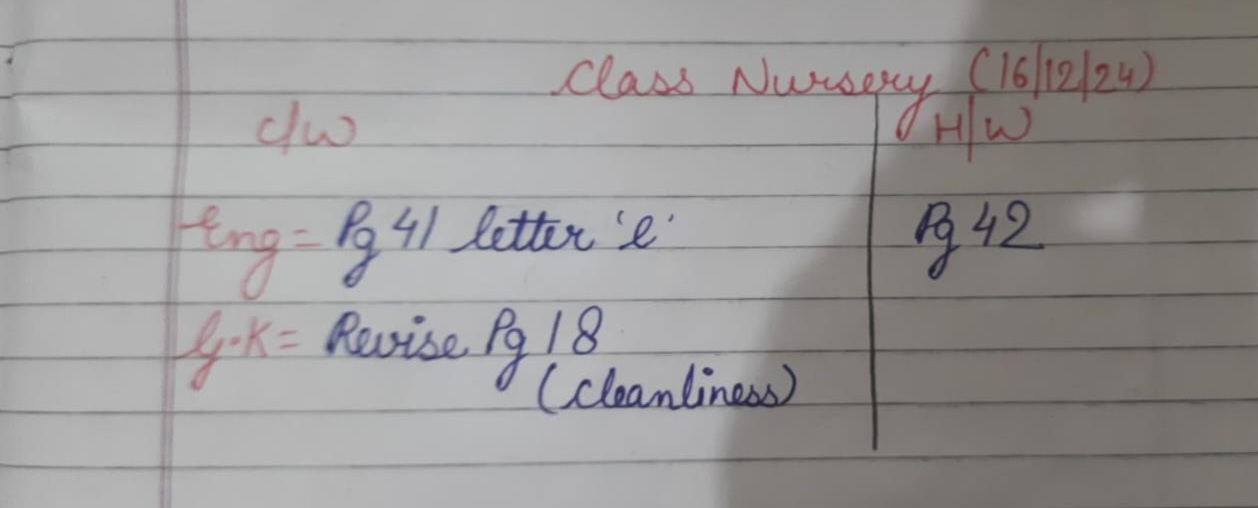 Class Nursery (16/12/24)
C/W H/W
Eng = Pg 41 letter 'l' Pg 42
G.K = Revise Pg 18
(cleanliness)